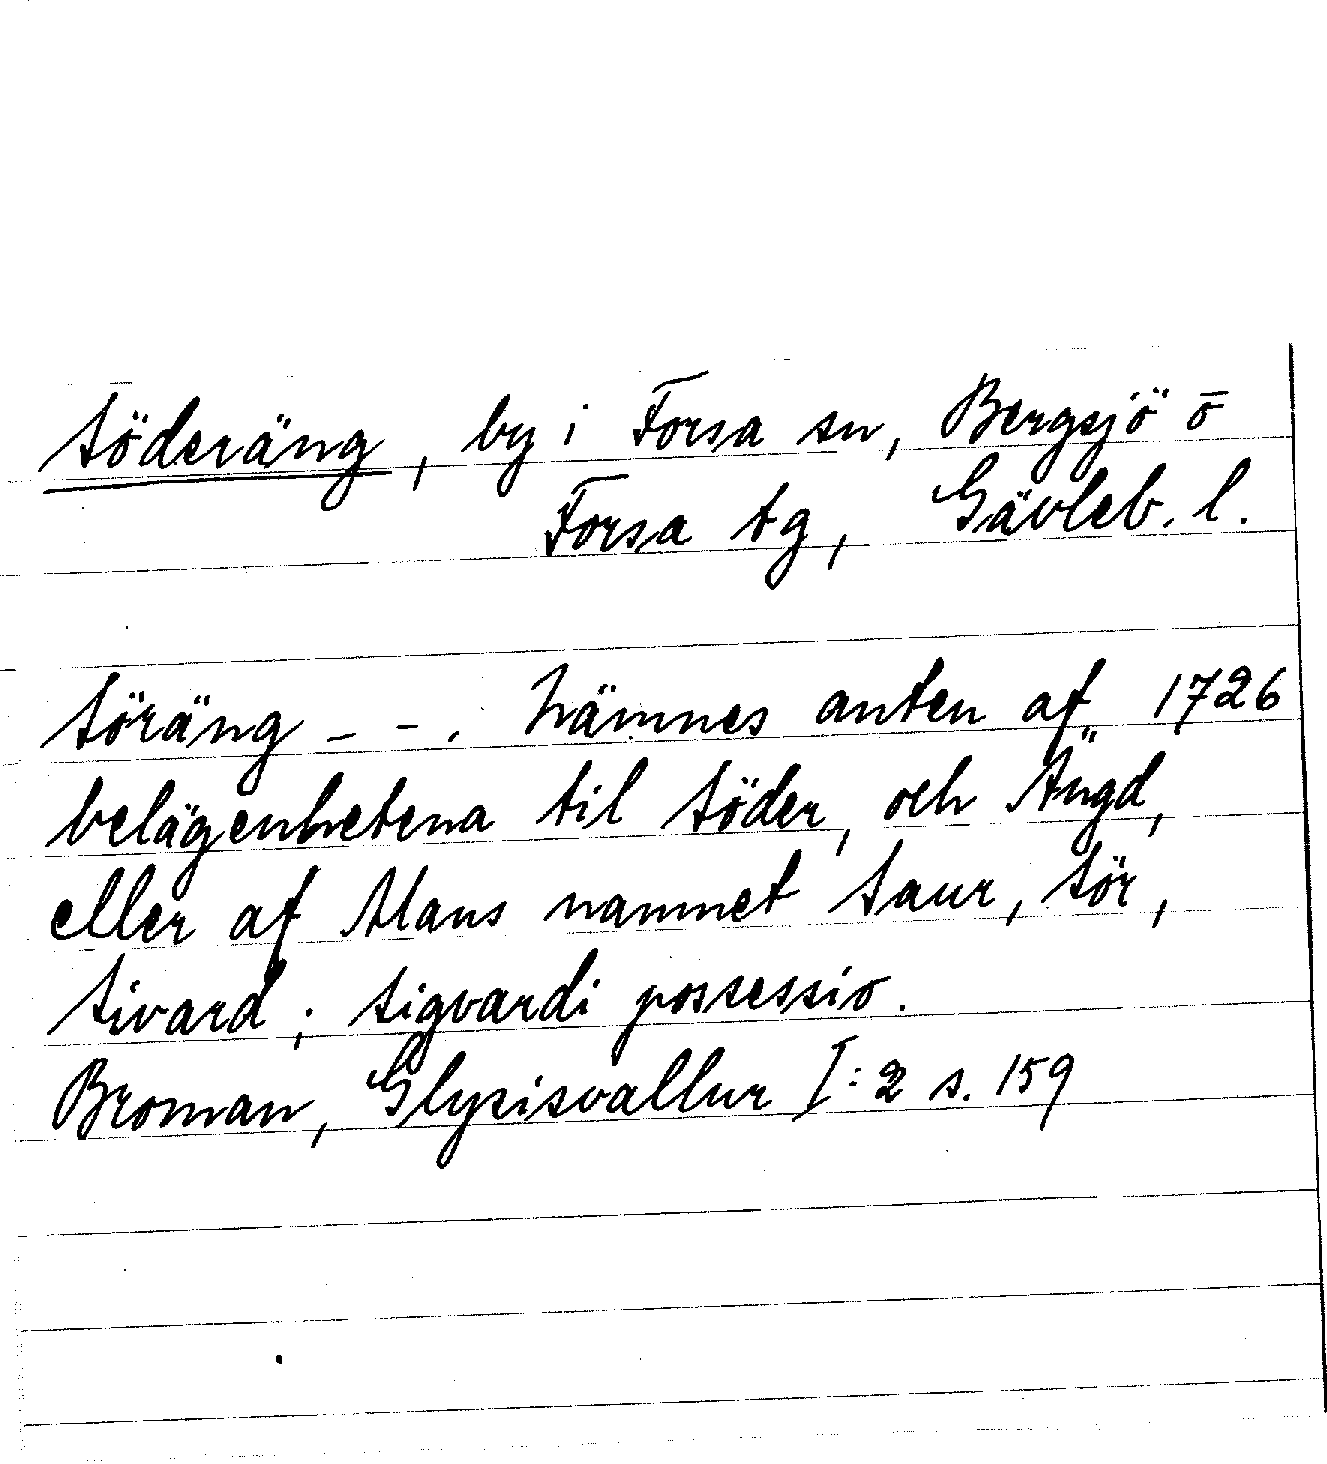 Söderäng, by i Forsa sn, Bergsjö o
Forsa tg, Gävleb. l.
Söräng - - . Nämnes anten af 1726
belägenhetena til Söder, och Ängd,
eller af Mans namnet Saur, Sör,
Sivard; Sigvardi possessio.
Broman, Glysisvallur I:2 s. 159